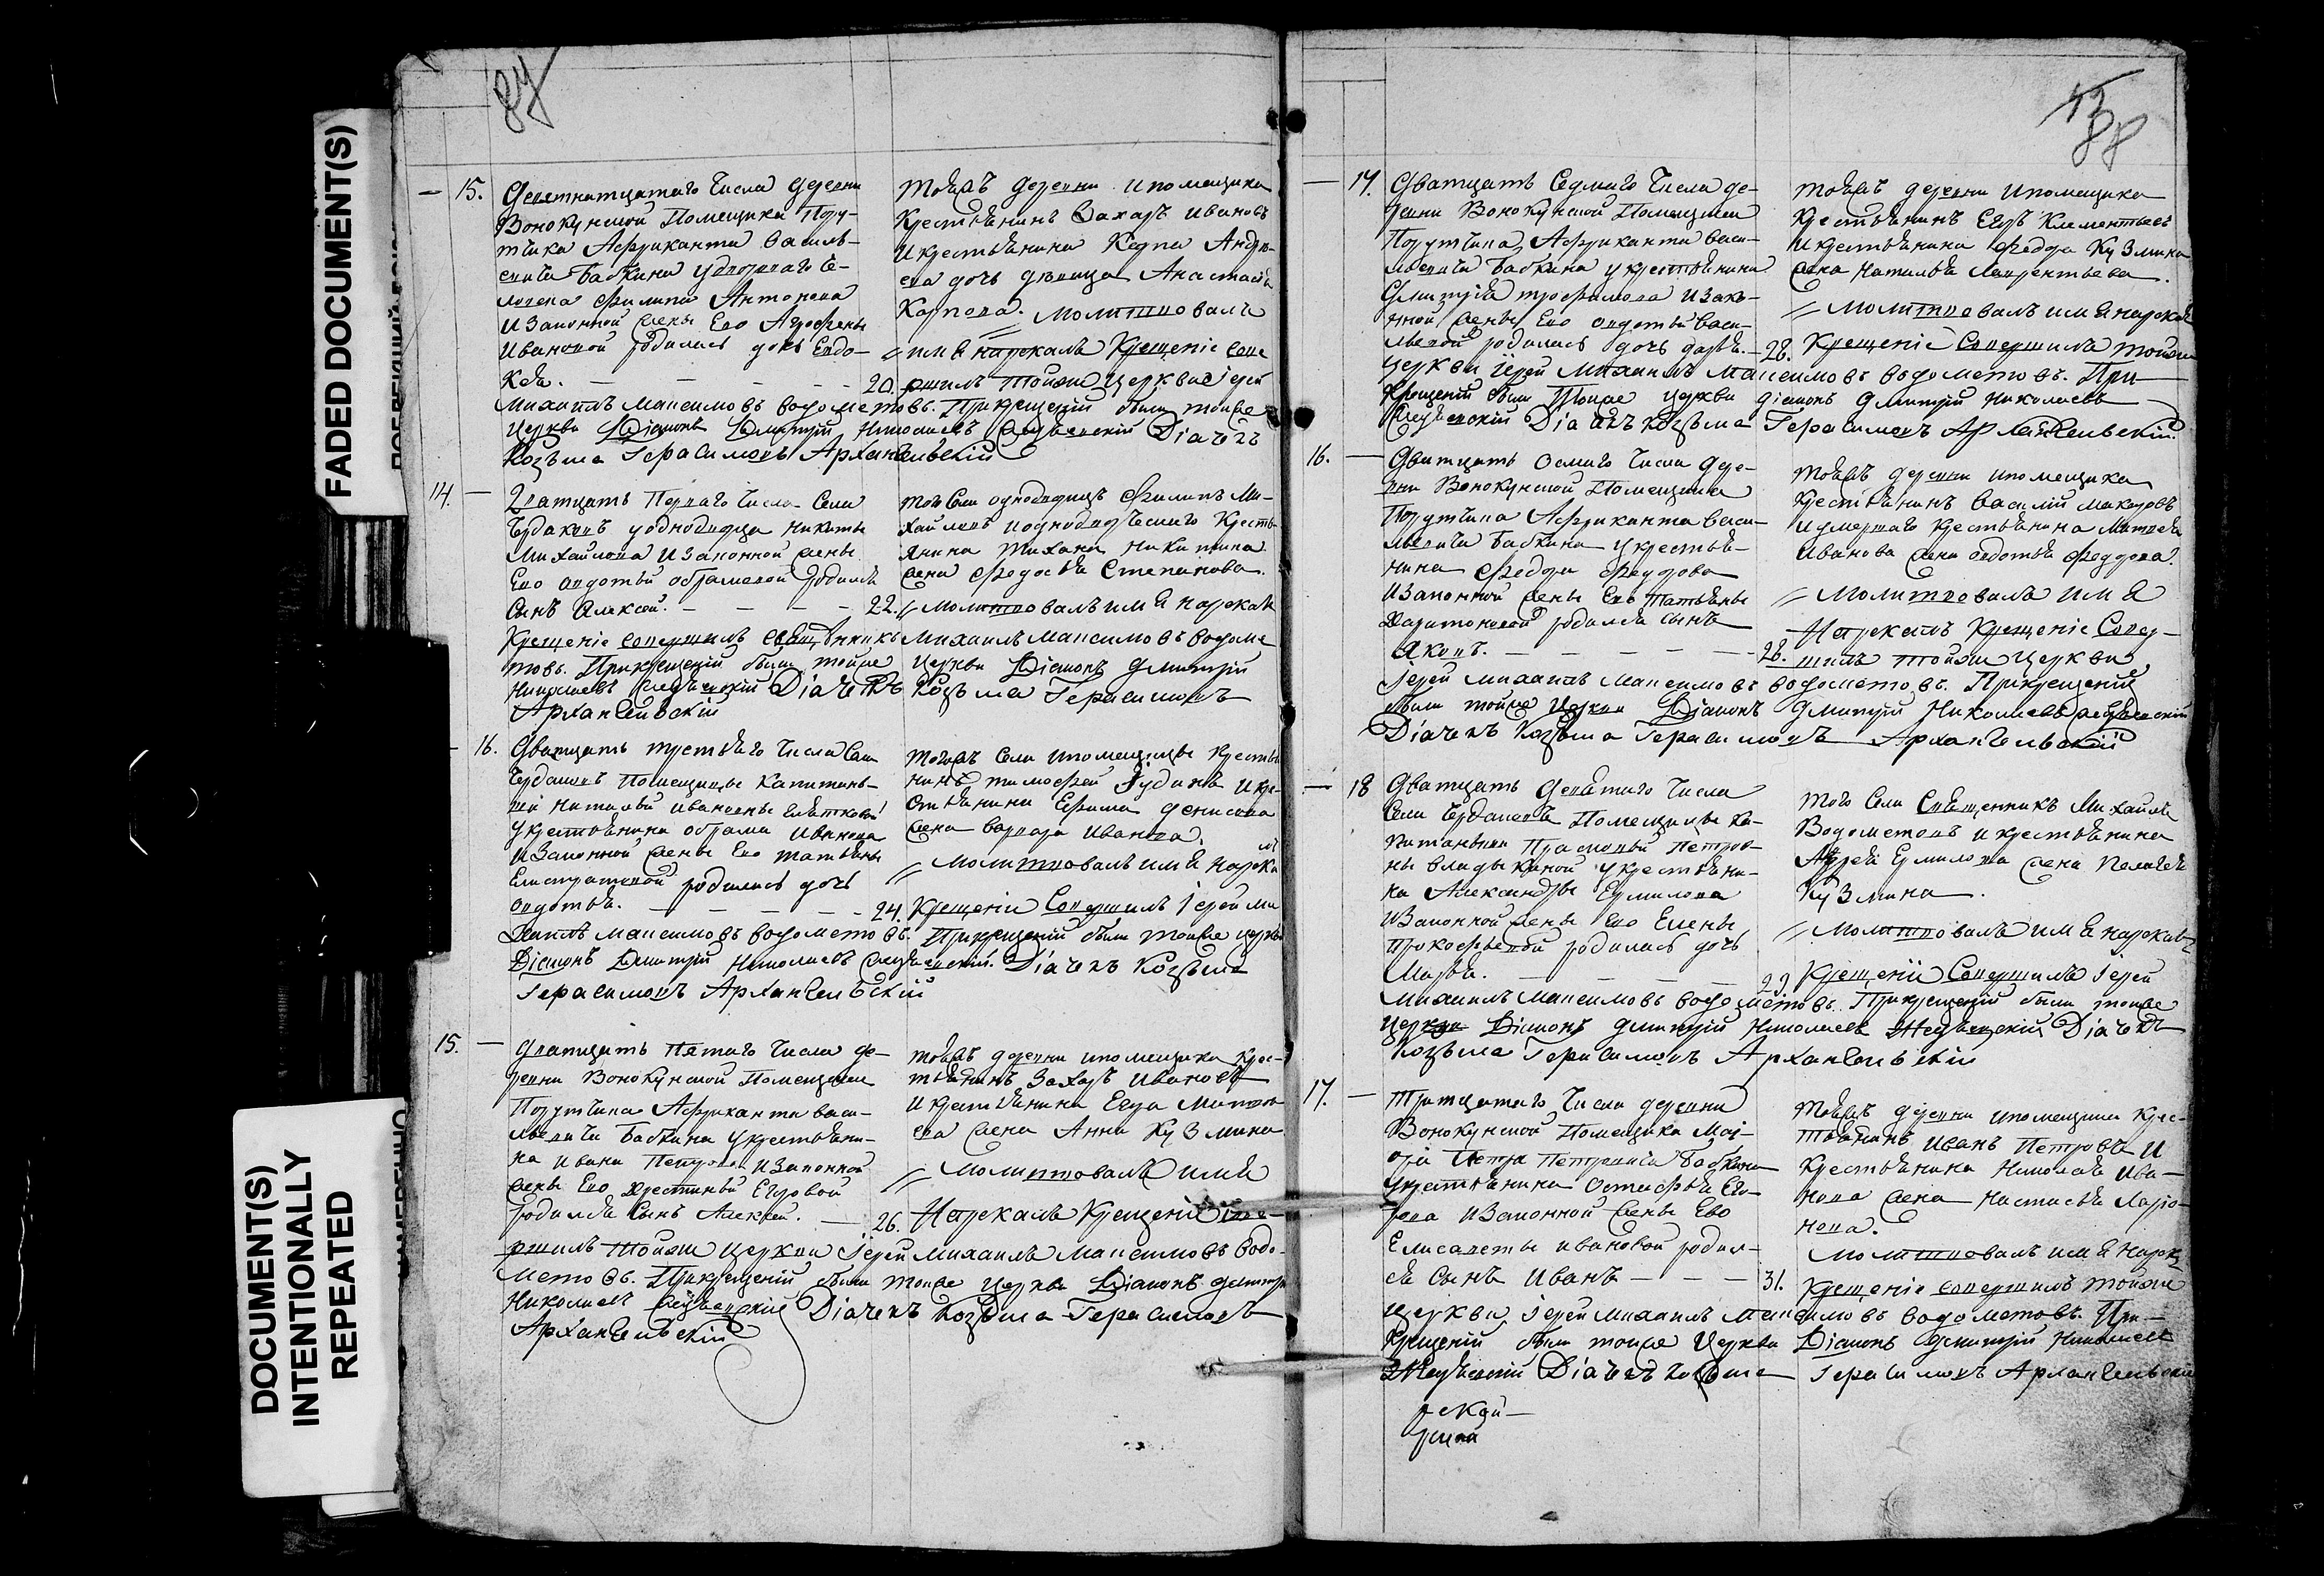 FADED DOCUMENT(S)
DOCUMENT(S)
INTENTIONALLY
REPEATED
87
15. Деветнатцатаго Числа деревни
Вонокунской Помещика Пору-
тчика Африканта Василь-
евича Бабкина удвороваго Че-
ловека Филипа Антонова
И Законной жены Ево Агрофены
Ивановой родилась дочь Евдо-
Кея. 20.
тояжъ деревни ипомещика
Крестьянинъ Захаръ Ивановъ
И крестьянина Карпа Андре-
ева дочь девица Анастасья
Карпова. Молитвовалъ
имя нарекалъ Крещеніе Сове
ршилъ тойжъ Церкви Іерей
Михаилъ Максимовъ водометовъ. Прикрещеніи были тояже
Церкви Діаконъ Дмитрій Николаевъ Діачекъ
Козьма Герасимовъ Архангельскій
14. Дватцать Перваго Числа Села
Чердаковъ уоднодворца Никиты
Михайлова И Законной жены
Ево Авдотьи Обрамовой родился
Сынъ Алексей. 22.
тогожъ Села однодворецъ Филипъ Ми-
хайловъ иоднодворческаго Кресть
янина Тихана Никитина
жена Федосья Степанова.
Молитвовалъ имя нарекалъ
Крещеніе совершилъ священникъ Михаилъ Максимовъ водоме
товъ. Прикрещеніи были тояже Церкви Діаконъ Дмитрій
Николаевъ Діачекъ Козьма Герасимовъ
Архангельскій
16. Дватцать третьяго Числа Села
Чердаковъ Помещицы Капитанъ-
ши Натальи Ивановны
укрестьянина Обрама Иванова
И Законной жены Ево Татьяны
Елистратовой родилась дочь
Авдотья. 24.
тогожъ Села ипомещицы Крестья
нинъ Тимофей Іудинъ Икре-
стьянина Ефима Денисова
жена Варвара Иванова.
Молитвовалъ имя нарекалъ
Крещеніе Совершилъ Іерей Ми
хаилъ Максимовъ водометовъ. Прикрещеніи были тояже церкви
Діаконъ Дмитрій Николаевъ Діачекъ Козьма
Герасимовъ Архангельскій
15. Дватцать Пятаго Числа де-
ревни Вонокунской Помещика
Порутчика Африканта васи-
льевича Бабкина укрестьяни-
на Ивана Петрова И Законной
жены Ево Хрестиньи Егоровой
родился Сынъ Алексей. 26.
тояжъ деревни ипомещика Крес-
тьянинъ Захаръ Ивановъ
И крестьянина Егора Матве
ева жена Анна Кузмина
Молитвовалъ имя
Нарекалъ Крещеніе Сове-
ршилъ тойжъ Церкви Іерей Михаилъ Максимовъ Водо-
метовъ. Прикрещеніи были тояже Церкви Діаконъ Дмитрій
Николаевъ Діачекъ Козьма Герасимовъ
Архангельскій
88
17. Дватцать Седмаго Числа де-
ревни Вонокунской Помещика
Порутчика Африканта васи-
льевича Бабкина укрестьянина
Дмитрія трофимова И Зако-
нной жены Ево Авдотьи Васи-
льевой родилась дочь дарья. 28.
тояжъ деревни ипомещика
Крестьянинъ Егоръ Клементьевъ
И крестьянина Федора Кузмина
жена Наталья Лаврентьева.
Молитвовалъ имя нарекалъ
Крещеніе Совершилъ тойжъ
Церкви Іерей Михаилъ Максимовъ водометовъ. При
крещеніи были тояже Церкви діаконъ Дмитрій Николаевъ
Діачекъ Козьма Герасимовъ Архангельскій
16. Дватцать Осмаго Числа дере-
вни Вонокунской Помещика
Порутчика Африканта васи-
льевича Бабкина укрестья-
нина Федора Федорова
И Законной жены Ево Татьяны
Харитоновой родился Сынъ
Яковъ. 28.
тояжъ деревни ипомещика
Крестьянинъ Василій Макаровъ
И умершаго Крестьянина Матвея
Иванова жена Авдотья Федорова.
Молитвовалъ имя
Нарекалъ Крещеніе Совер-
шилъ тойжъ Церкви
Іерей Михаилъ Максимовъ водометовъ. Прикрещеніи
были тояже Церкви Діаконъ Дмитрій Николаевъ
Діачекъ Козьма Герасимовъ Архангельскій
18 Дватцать Девятаго Числа
Села Чердаковъ Помещицы Ка-
питанши Прасковьи Петров-
ны Владыкиной укрестьяни-
на Александры Ермилова
И Законной жены Ево Елены
Прокофьевой родилась дочь
Марья. 29.
того Села Священникъ Михаилъ
Водометовъ и крестьянина
Андрея Ермилова жена Пелагея
Кузмина.
Молитвовалъ имя нарекалъ
Крещеніе Совершилъ Іерей
Михаилъ Максимовъ водометовъ. Прикрещеніи были тояже
Церкви Діаконъ Дмитрій Николаевъ Діачекъ
Козьма Герасимовъ Архангельскій
17. Тритцатаго Числа деревни
Вонокунской Помещика Маі-
ора Петра Петровича Бабкина
укрестьянина Остафья Его-
рова И Законной жены Ево
Елисаветы Ивановой родил-
ся Сынъ Иванъ 31.
тояжъ деревни ипомещика Крес-
тьянинъ Иванъ Петровъ И
Крестьянина Николая Ива-
нова жена Настасья Ларио-
нова.
Молитвовалъ имя нарек
Крещеніе совершилъ тойжъ
Церкви Іерей Михаилъ Максимовъ водометовъ. При-
крещеніи были тояже Церкви Діаконъ Дмитрій Николаевъ
Діачекъ Козьма Герасимовъ Архангельскій